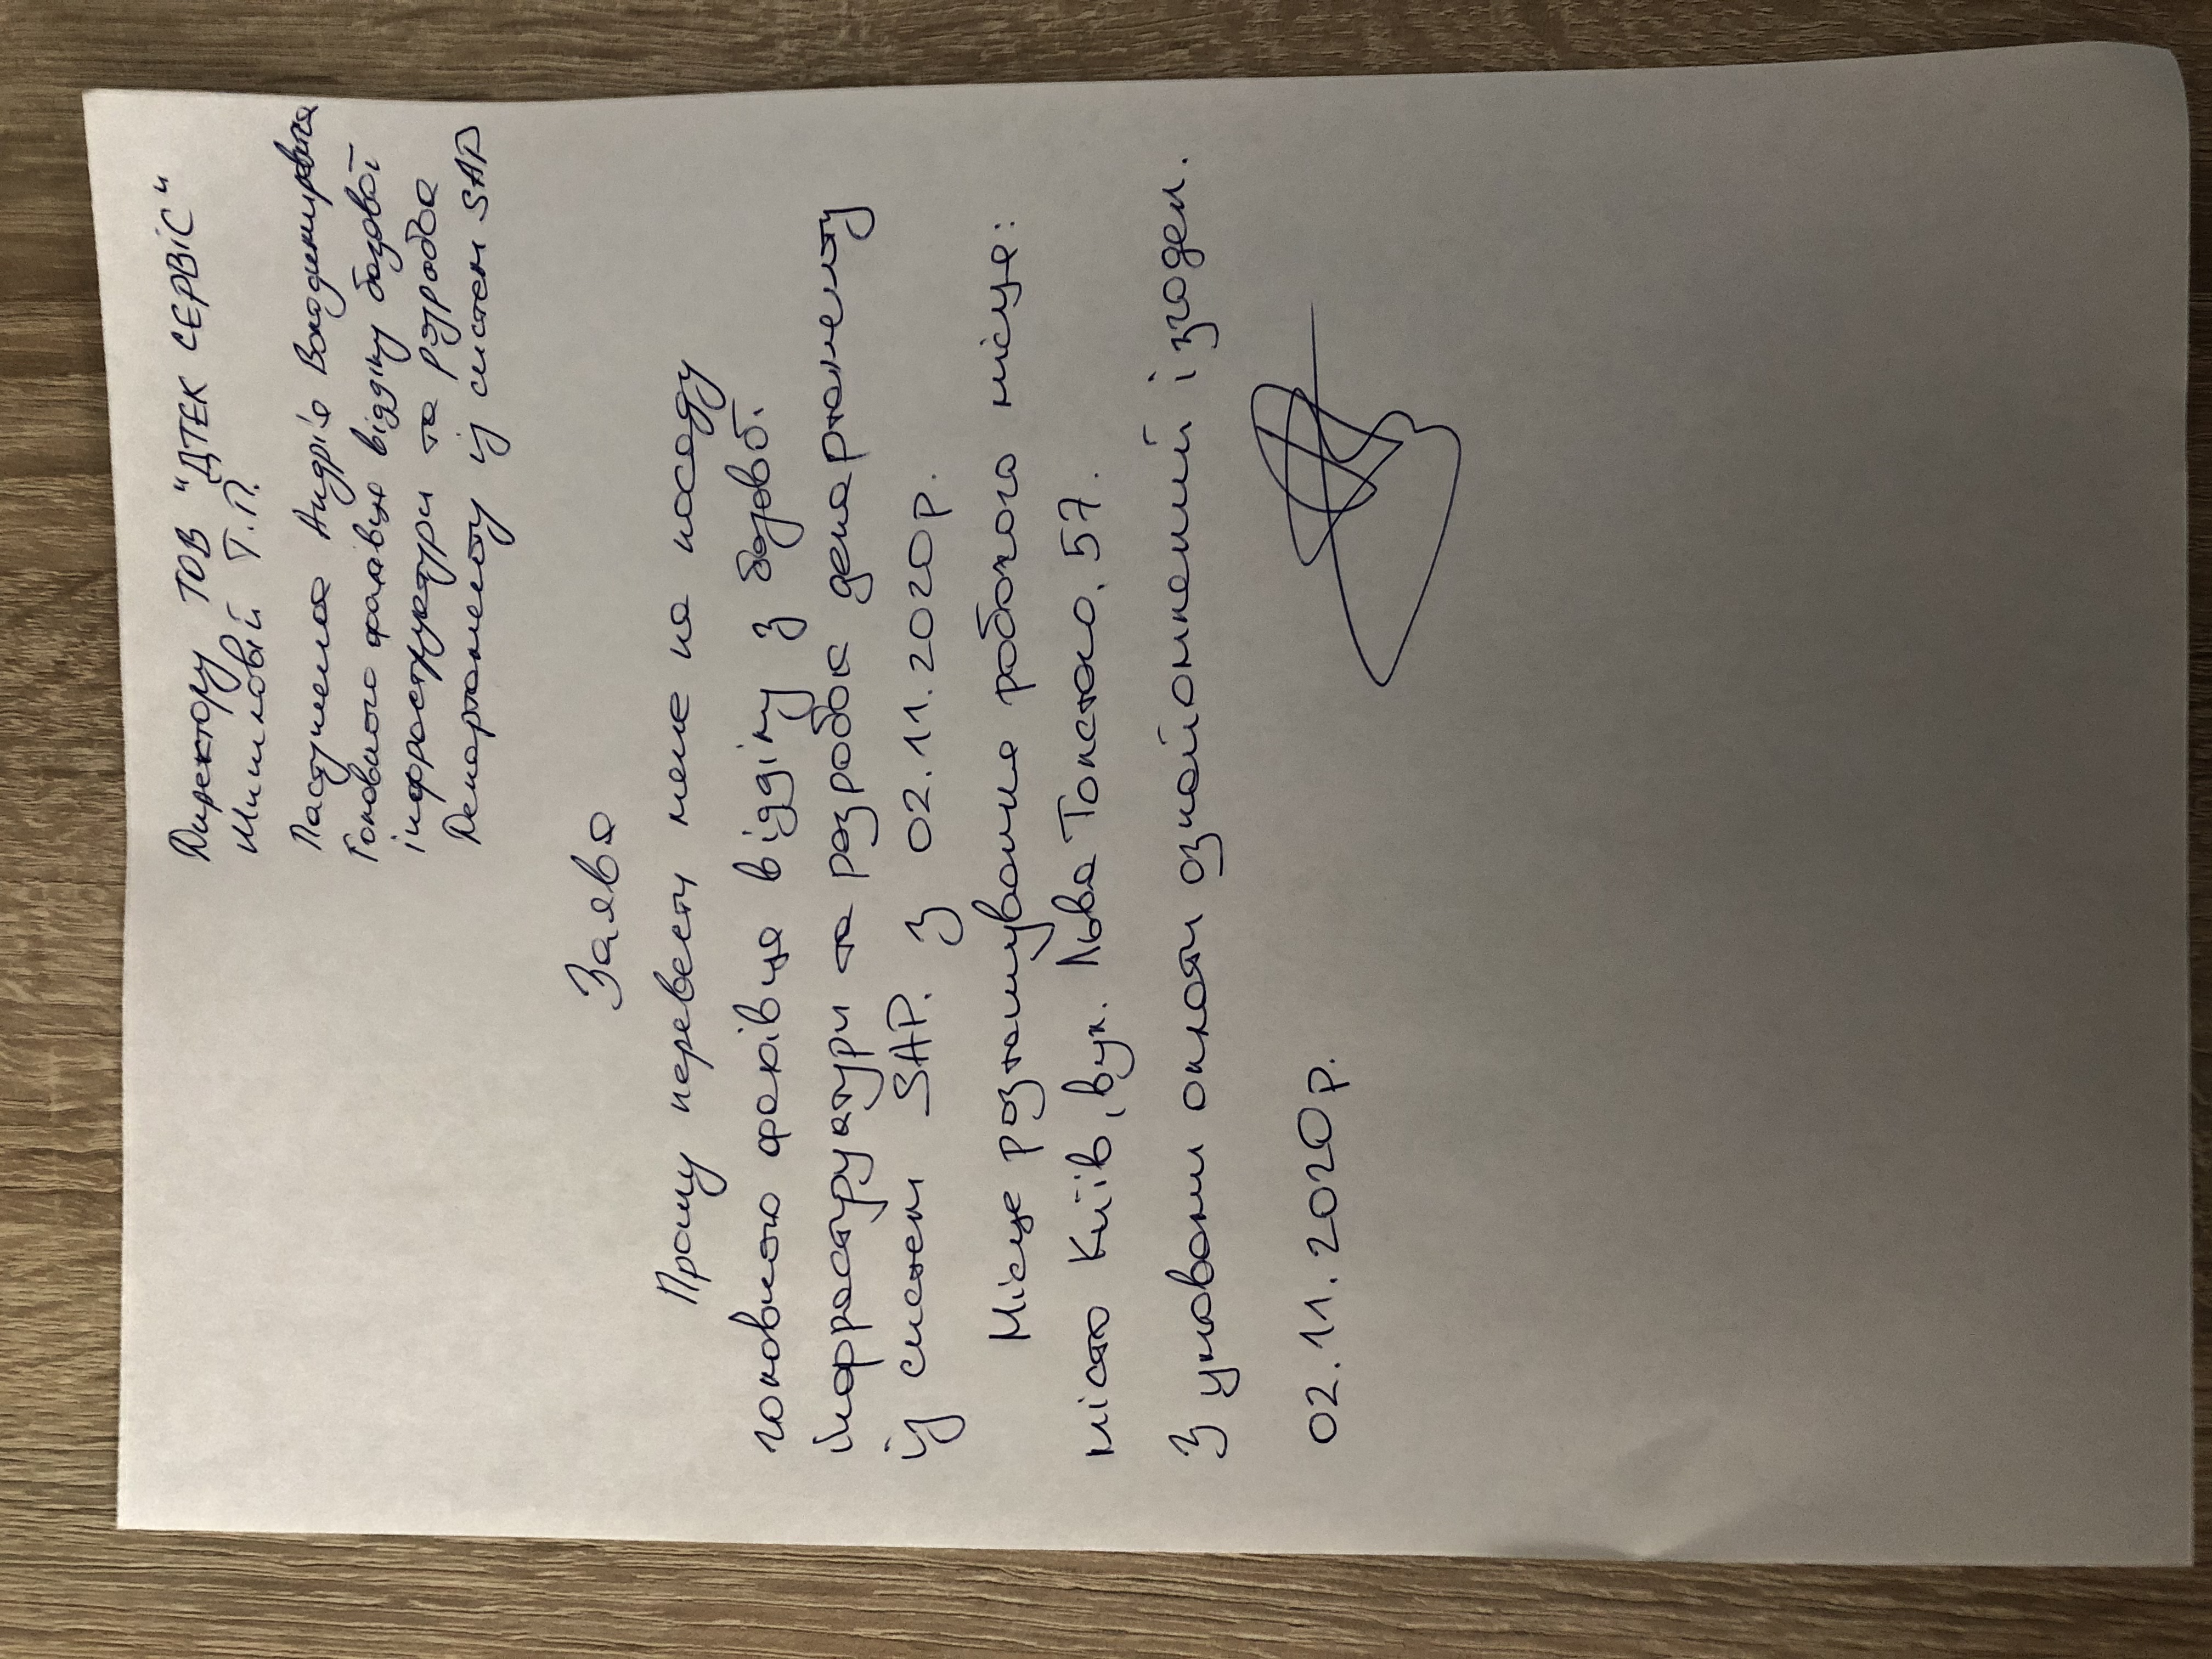 Директору ТОВ "ДТЕК СЕРВІС"
Шишловій Т.П.
Пастушенка Андрія Володимировича
Головного фахівця відділу базової
інфраструктури та розробок
Департаменту із систем SAP
Заява
Прошу перевести мене на посаду
головного фахівця відділу з базової
інфраструктури та розробок департаменту
із систем SAP. з 02.11.2020р.
Місце розташування робочого місця:
місто Київ, вул. Льва Толстого, 57.
З умовами оплати ознайомлений і згоден.
02.11.2020р.